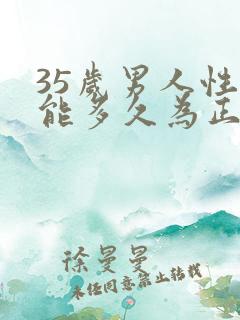 35岁男人性
能多久为正
徐曼曼
未经同意禁止转载